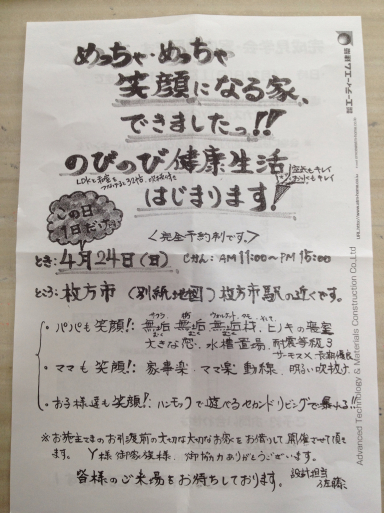 めっちゃ・めっちゃ
笑顔になる家、
できましたっ!!
のびのび健康生活
空気もキレイ
はじまります!
この日
1日だけ
<完全予約制です。>
とき:4月24日(日) じかん:AM 11:00〜PM 15:00
ところ:枚方市 (別紙地図) 枚方市駅の近くです。
・パパも笑顔!:無垢・無垢・無垢材、ヒノキの寝室
大きな窓、水槽置場、耐震等級3
・ママも笑顔!:家事楽・ママ楽動線、明るい吹抜け
・お子様達も笑顔!:ハンモックで遊べるセカンドリビングで暴れる!!
※お施主さまのお引渡前の大切な大切なお家をお借りして開催させて頂き
ます。Y様御家族様、御協力ありがとうございます。
皆様のご来場をお待ちしております。
設計担当
佐藤
Advanced Technology & Materials Construction Co.,Ltd